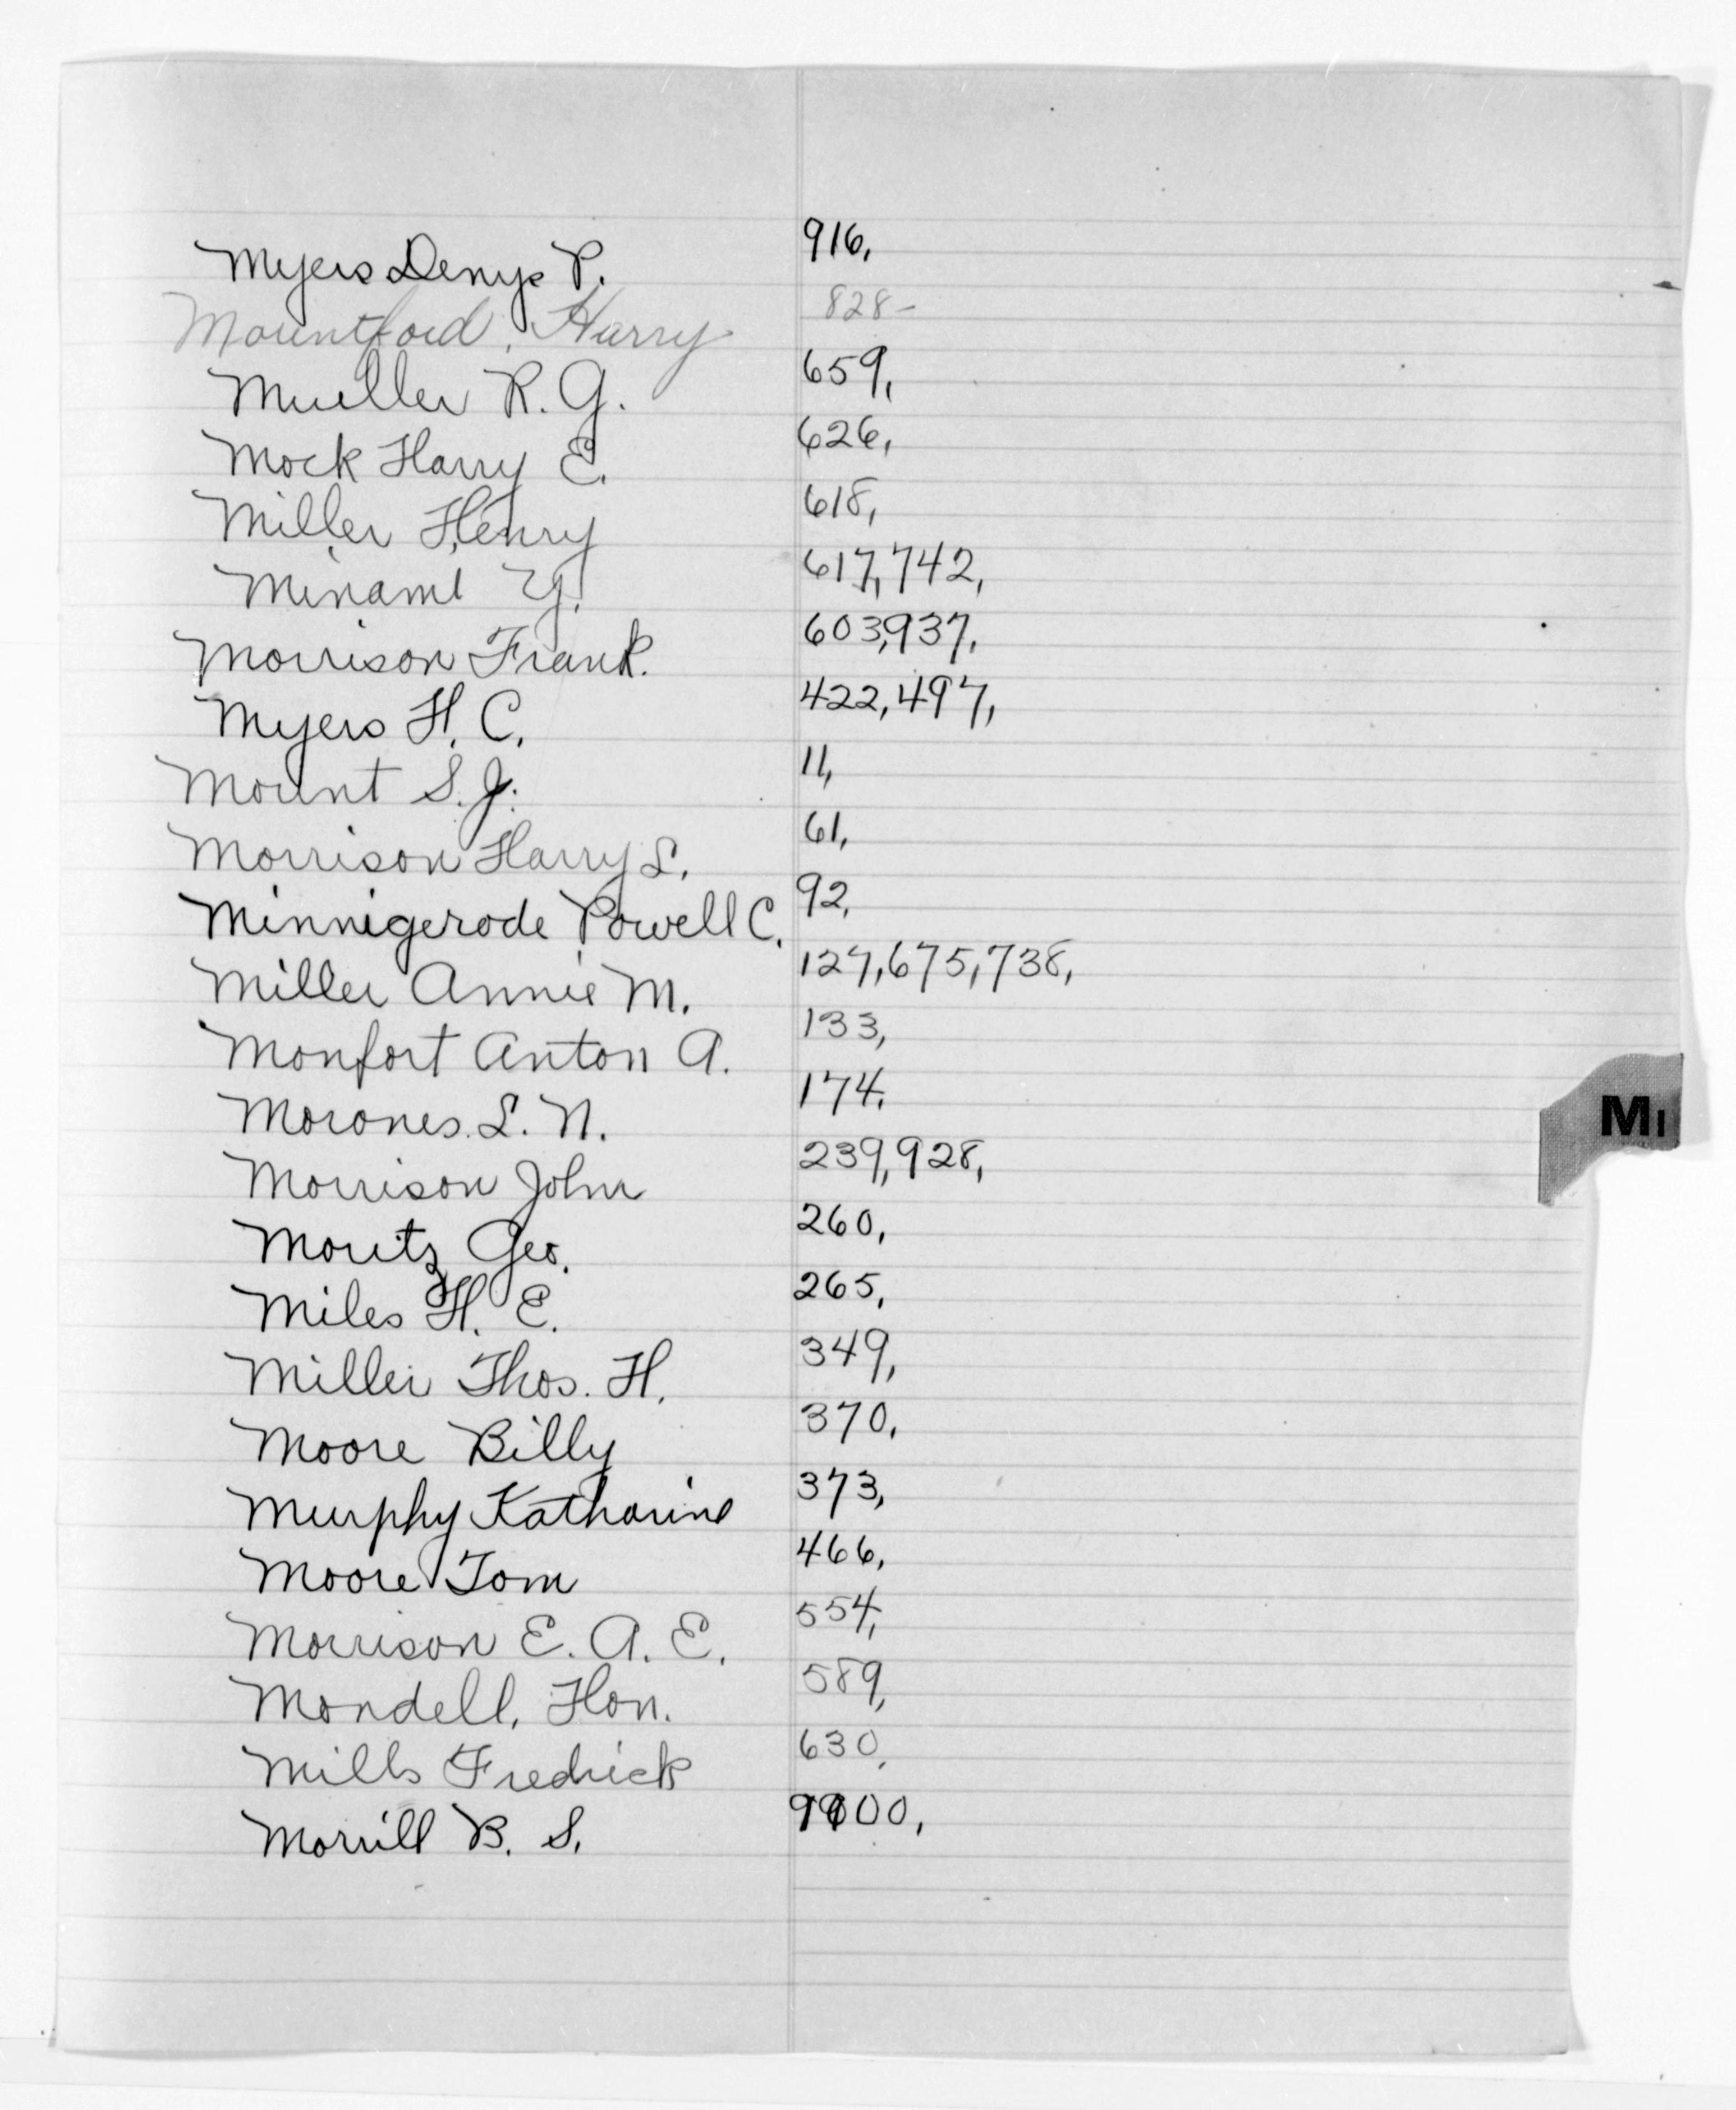 Myers Denys P. 916,
Mountford, Harry 828-
Mueller R. G. 659,
Mock Harry E. 626,
Miller Henry 618,
Minami Y. 617,742,
Morrison Frank. 603,937,
Myers H. C. 422,497,
Mount S. J. 11,
Morrison Harry L. 61,
Minnigerode Powell C. 92,
Miller Annie M. 127,675,738,
Monfort Anton A. 133,
Morones. L. N. 174.
Morrison John 239,928,
Moritz Geo. 260,
Miles H. E. 265,
Miller Thos. H. 349,
Moore Billy 370,
Murphy Katharine 373,
Moore Tom 466,
Morrison E. A. E. 554,
Mondell, Hon. 589,
Mills Fredrick 630,
Morrill B. S.
MI